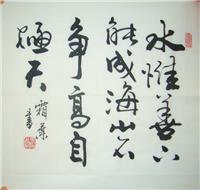 水惟善下
能成海山不
争高自
極天
霜葉